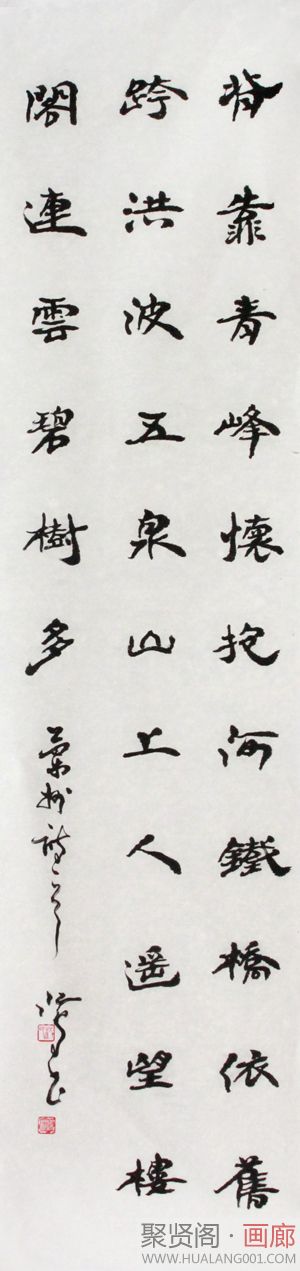 背靠青峰懷抱河鐵橋依舊
跨洪波五泉山上人遥望樓
閣連雲碧樹多
蘭州詩之一
聚贤阁·画廊
WWW.HUALANG001.COM